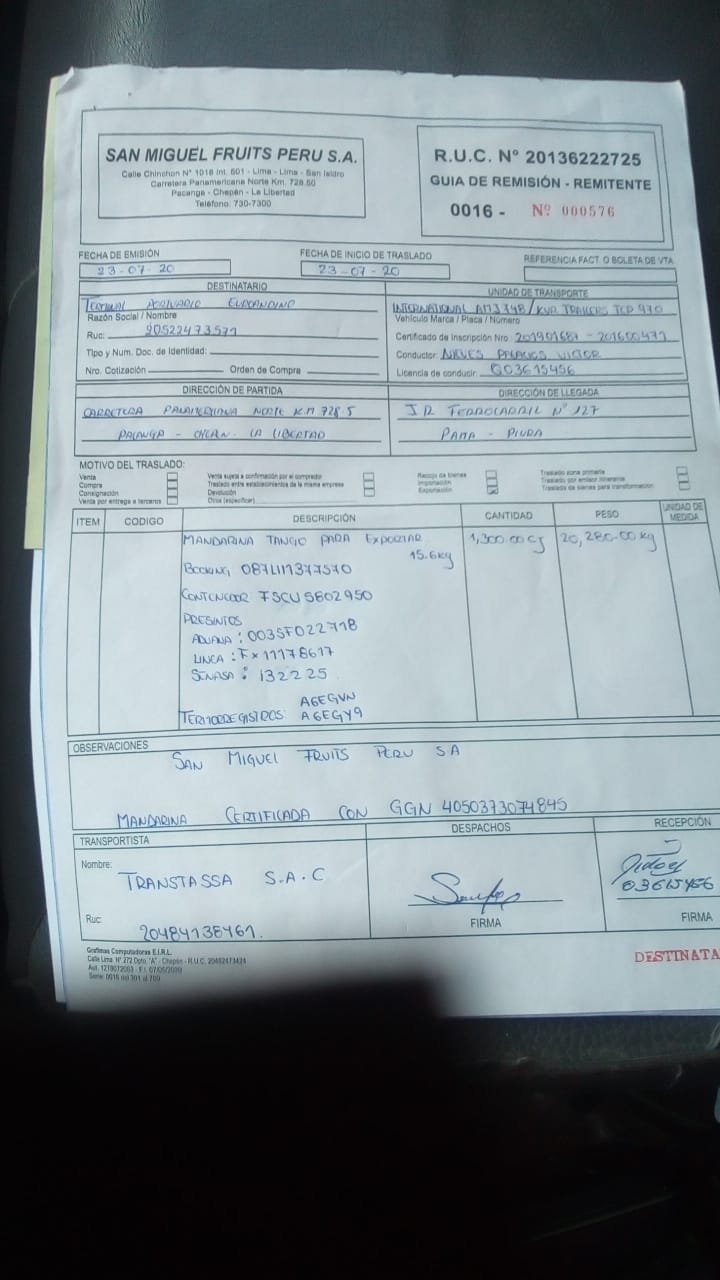 SAN MIGUEL FRUITS PERU S.A.
Calle Chinchon N° 1018 Int. 601 - Lima - Lima - San Isidro
Carretera Panamericana Norte Km. 728.50
Pacanga - Chepén - La Libertad
Teléfono: 730-7300
R.U.C. N° 20136222725
GUIA DE REMISIÓN - REMITENTE
0016 - Nº 000576
FECHA DE EMISIÓN
23-07-20
FECHA DE INICIO DE TRASLADO
23-07-20
REFERENCIA FACT. O BOLETA DE VTA.
DESTINATARIO
TERMINAL PORTUARIO EUROANDINO
Razón Social / Nombre
Ruc: 20522473571
Tipo y Num. Doc. de Identidad:
Nro. Cotización Orden de Compra
UNIDAD DE TRANSPORTE
INTERNATIONAL / TRAILERS
Vehículo Marca / Placa / Número
Certificado de Inscripción Nro.
Conductor: NIEVES PALACIOS VICTOR
Licencia de conducir: G03615456
DIRECCIÓN DE PARTIDA
CARRETERA PANAMERICANA NORTE KM 728.5
PACANGA - CHEPEN - LA LIBERTAD
DIRECCIÓN DE LLEGADA
JR FERROCARRIL N° 127
PAITA - PIURA
MOTIVO DEL TRASLADO:
Venta
Compra
Consignación
Venta por entrega a terceros
Venta sujeta a confirmación por el comprador
Traslado entre establecimientos de la misma empresa
Devolución
Otros (especificar)
Recojo de bienes
Importación
Exportación
Traslado zona primaria
Traslado por emisor itinerante
Traslado de bienes para transformación
ITEM CODIGO DESCRIPCIÓN CANTIDAD PESO UNIDAD DE MEDIDA
MANDARINA TANGO PARA EXPORTAR 1,300.00 CJ 20,280.00 kg
15.6kg
BOOKING 087LM1377570
CONTENEDOR FSCU5602950
PRESINTOS
ADUANA : 003SF022718
LINEA : FX11178617
SENASA : 132225
A6EGVN
TERMORREGISTROS A6EGY9
OBSERVACIONES
SAN MIGUEL FRUITS PERU SA
MANDARINA CERTIFICADA CON GGN 4050373074845
TRANSPORTISTA
Nombre: TRANSTASSA S.A.C
Ruc: 20484138461.
DESPACHOS
FIRMA
RECEPCIÓN
03615456
FIRMA
Grafimas Computadoras E.I.R.L.
Calle Lima N° 272 Dpto. "A" - Chepén - R.U.C. 20482473424
Serie: 0016 del 301 al 700
DESTINATA